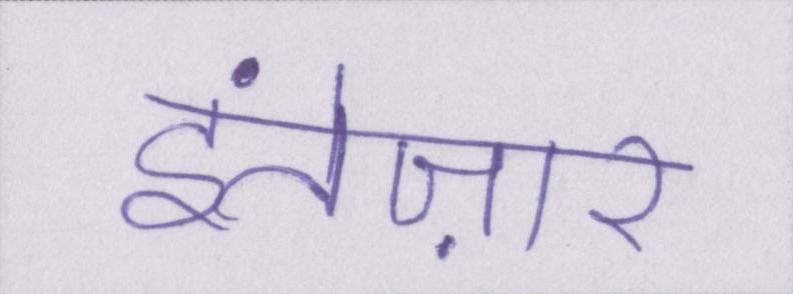 इंतेज़ार